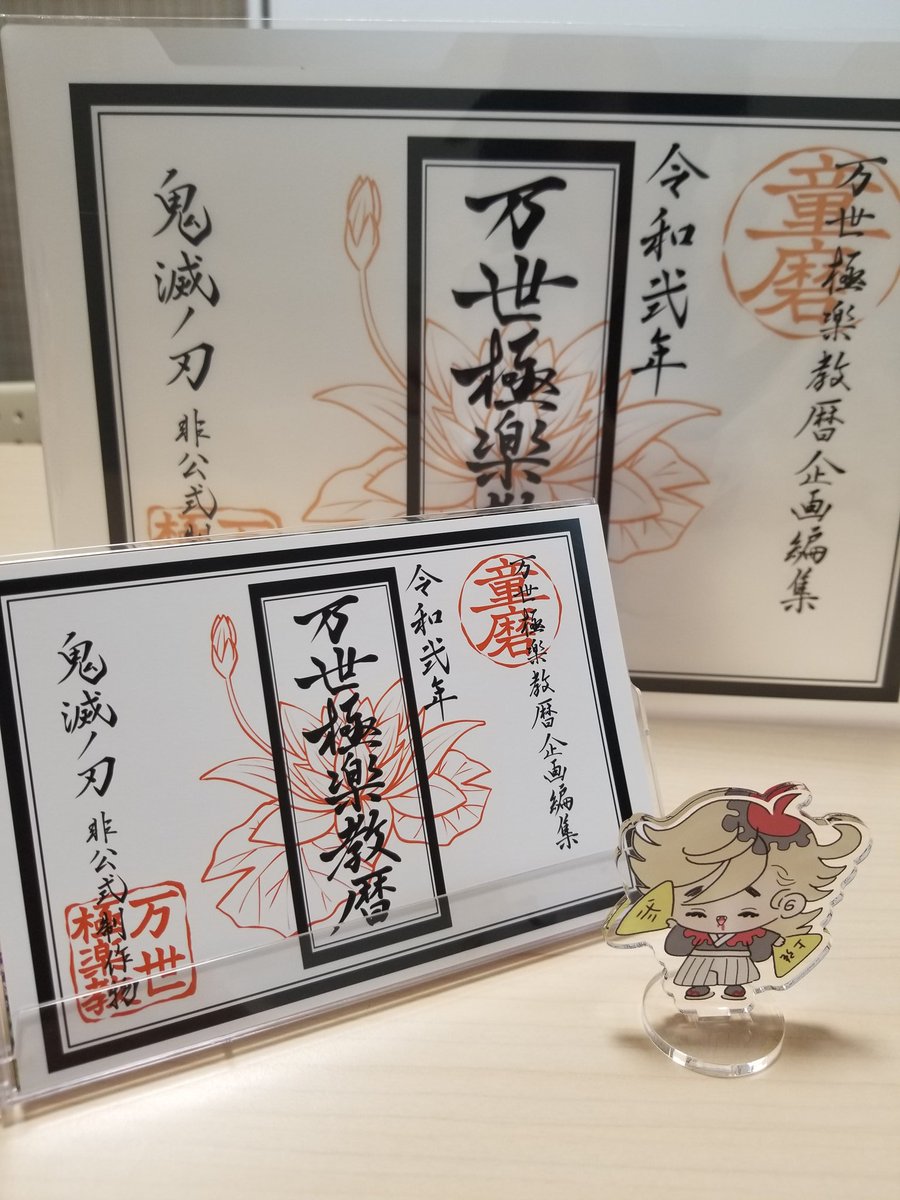 万世極楽教暦企画編集
童磨
令和弐年
万世極楽
鬼滅ノ刃 非公式
万世極楽教暦企画編集
童磨
令和弐年
万世極楽教暦
鬼滅ノ刃 非公式制作物
万世
極楽教